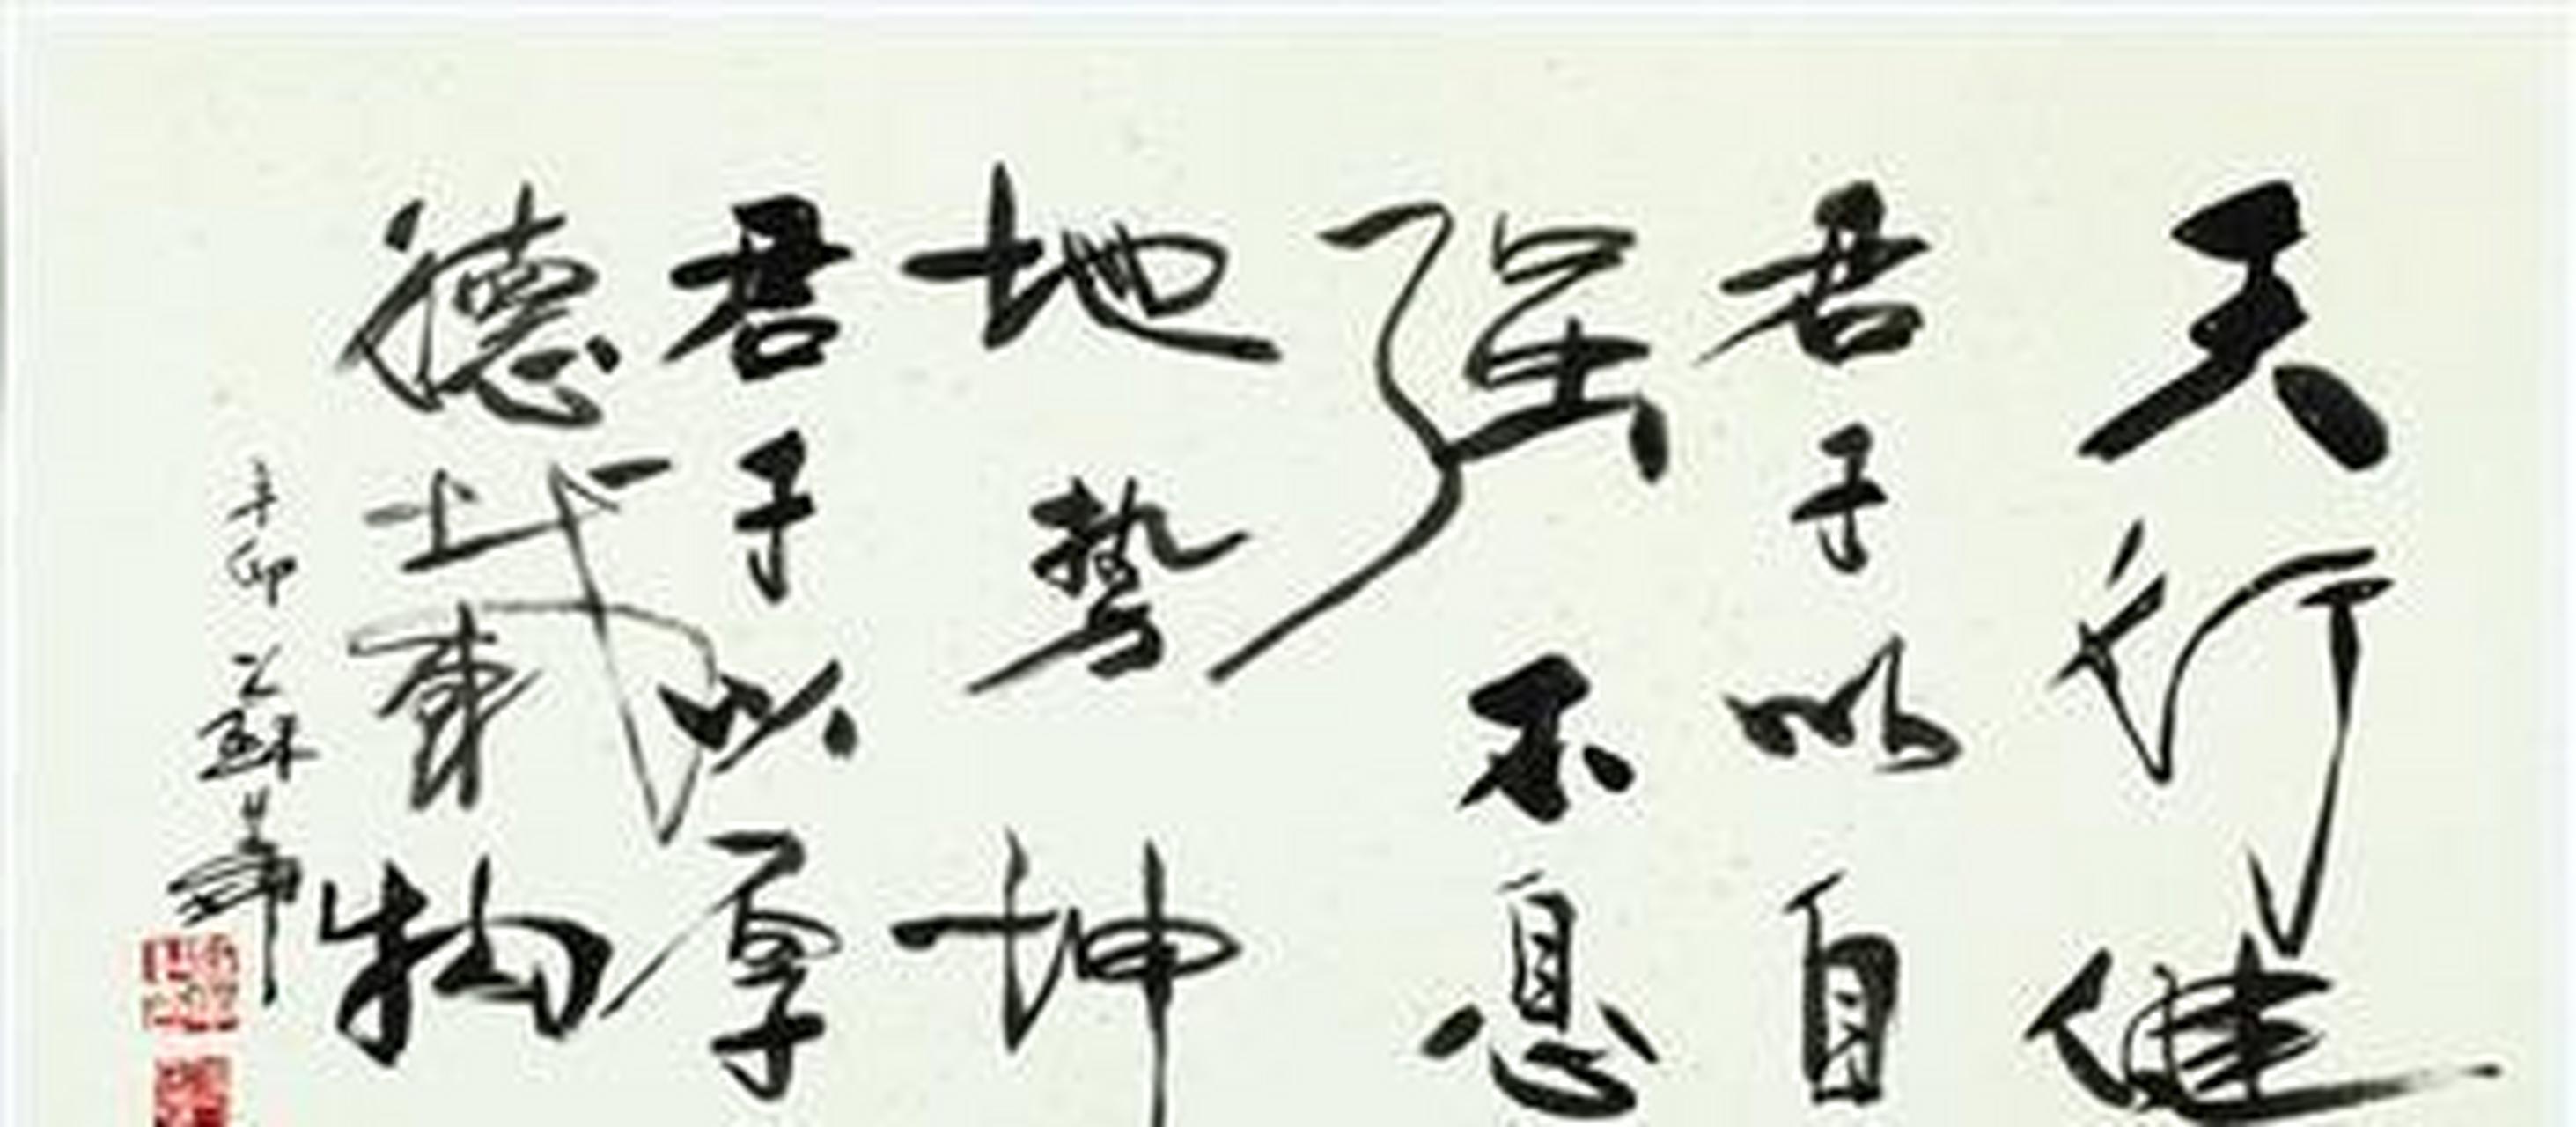 天行健
君子以自
强不息
地势坤
君子以厚
德载物
辛卯